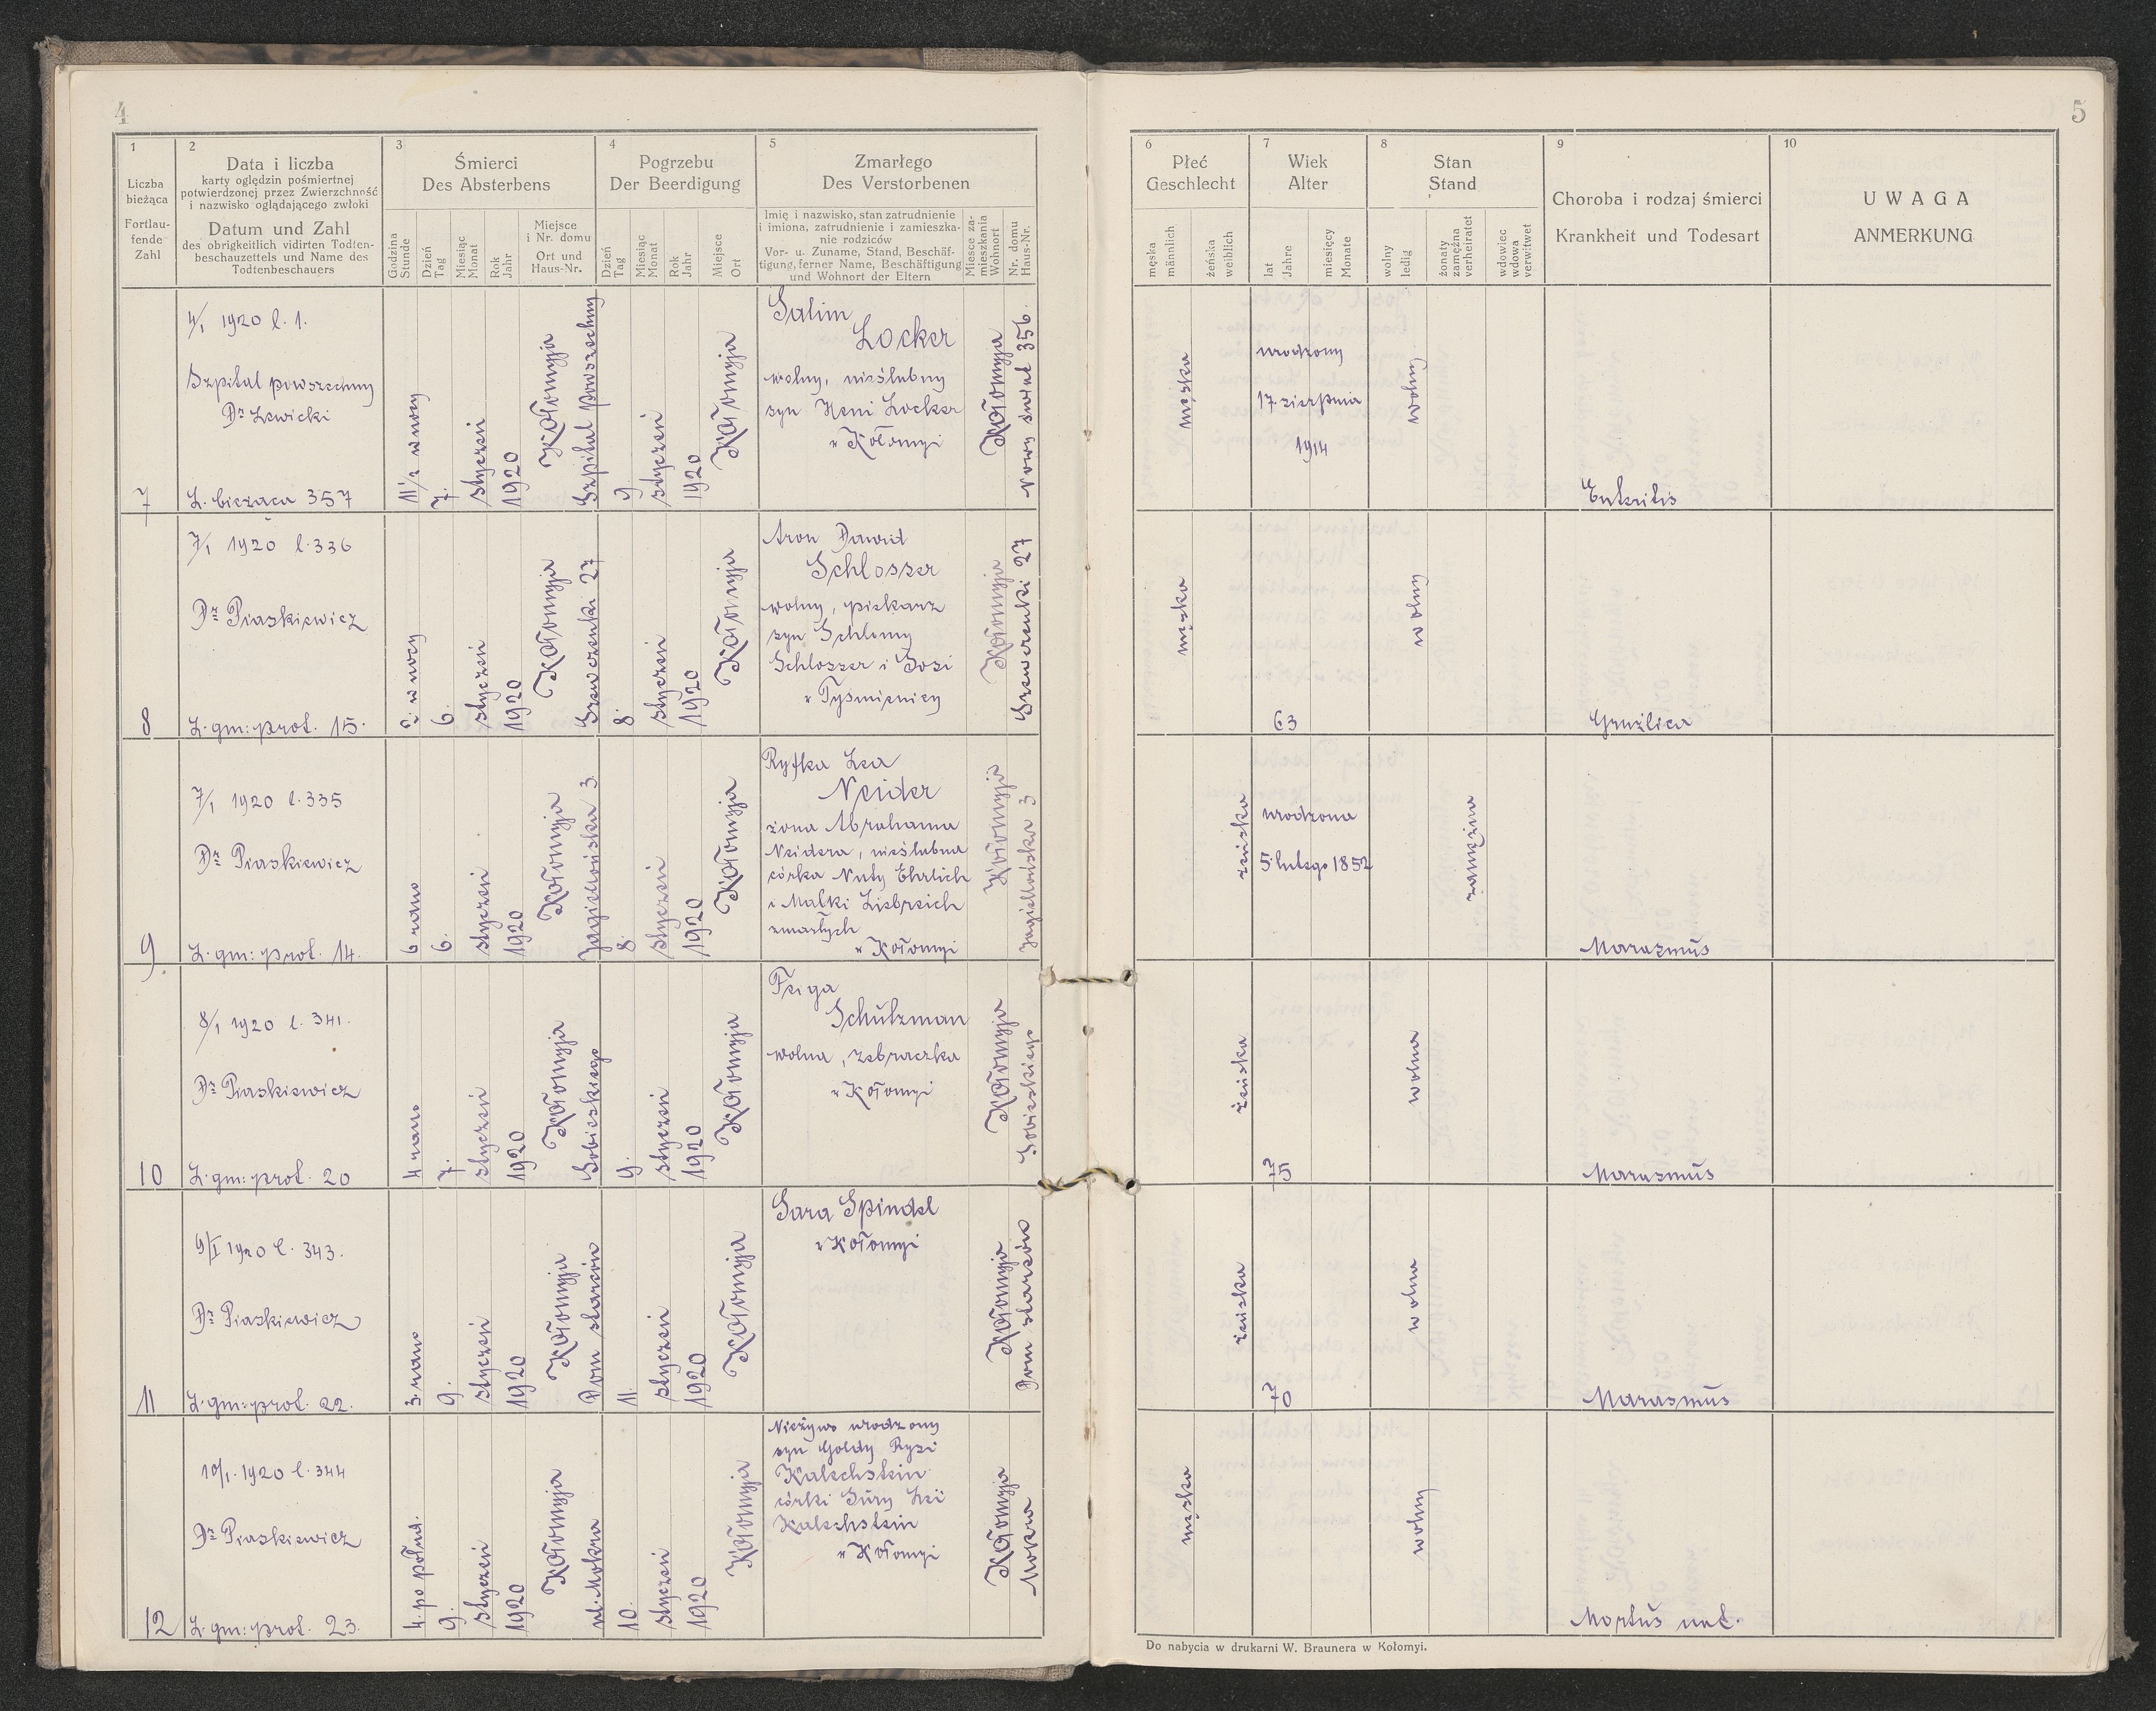 4
1
Liczba
bieżąca
Fortlau-
fende
Zahl
2
Data i liczba
karty oględzin pośmiertnej
potwierdzonej przez Zwierzchność
i nazwisko oglądającego zwłoki
Datum und Zahl
des obrigkeitlich vidirten Todten-
beschauzettels und Name des
Todtenbeschauers
3
Śmierci
Des Absterbens
Godzina
Stunde
Dzień
Tag
Miesiąc
Monat
Rok
Jahr
Miejsce
i Nr. domu
Ort und
Haus-Nr.
4
Pogrzebu
Der Beerdigung
Dzień
Tag
Miesiąc
Monat
Rok
Jahr
Miejsce
Ort
5
Zmarłego
Des Verstorbenen
Imię i nazwisko, stan zatrudnienie
i imiona, zatrudnienie i zamieszka-
nie rodziców
Vor- u. Zuname, Stand, Beschäf-
tigung, ferner Name, Beschäftigung
und Wohnort der Eltern
Miesce za-
mieszkania
Wohnort
Nr. domu
Haus-Nr.
7
4/1 1920 l. 1.
Szpital powszechny
Dr Lewicki
L. bieżąca 357
11 1/2 w nocy
7.
styczeń
1920
Kołomyja
Szpital powszechny
9.
styczeń
1920
Kołomyja
Salim
Locker
wolny, nieślubny
syn Heni Locker
z Kołomyi
Kołomyja
Nowy świat 356.
8
7/1 1920 l. 336
Dr Piaskiewicz
L. gm: prot. 15.
2. w nocy
6.
styczeń
1920
Kołomyja
Szewczenki 27
8.
styczeń
1920
Kołomyja
Aron Dawid
Schlosser
wolny, piekarz
syn Schlomy
Schlosser i Sosi
z Tyśmienicy
Kołomyja
Szewczenki 27
9
7/1 1920 l. 335
Dr Piaskiewicz
L. gm: prot. 14.
6 rano
6.
styczeń
1920
Kołomyja
Jagiellońska 3
8.
styczeń
1920
Kołomyja
Ryfka Lea
Neider
żona Abrahama
Neidera, nieślubna
córka Nuty Ehrlich
i Malki Liebreich
zmarłych
z Kołomyi
Kołomyja
Jagiellońska 3
10
8/1 1920 l. 341.
Dr Piaskiewicz
L. gm: prot. 20
4 rano
7.
styczeń
1920
Kołomyja
Sobieskiego
9.
styczeń
1920
Kołomyja
Feiga
Schulzman
wolna, żebraczka
z Kołomyi
Kołomyja
Sobieskiego
11
9/I 1920 l. 343.
Dr Piaskiewicz
L. gm: prot. 22.
3. rano
9.
styczeń
1920
Kołomyja
Dom starców
11.
styczeń
1920
Kołomyja
Sara Spindel
z Kołomyi
Kołomyja
Dom starców
12
10/1. 1920 l. 344
Dr Piaskiewicz
L. gm: prot. 23.
4. po połud.
9.
styczeń
1920
Kołomyja
ul. Mokra
10.
styczeń
1920
Kołomyja
Nieżywo urodzony
syn Goldy Rysi
Kalechstein
córki Sury Lei
Kalechstein
z Kołomyi
Kołomyja
Mokra
5
6
Płeć
Geschlecht
męska
männlich
żeńska
weiblich
7
Wiek
Alter
lat
Jahre
miesięcy
Monate
8
Stan
Stand
wolny
ledig
żonaty
zamężna
verheiratet
wdowiec
wdowa
verwitwet
9
Choroba i rodzaj śmierci
Krankheit und Todesart
10
UWAGA
ANMERKUNG
męska
urodzony
17. sierpnia
1914
wolny
Enteritis
męska
63
wolny
Gruźlica
żeńska
urodzona
5. lutego 1852
zamężna
Marazmus
żeńska
75
wolna
Marasmus
żeńska
70
wolna
Marasmus
męska
wolny
Mortus nat.
Do nabycia w drukarni W. Braunera w Kołomyi.